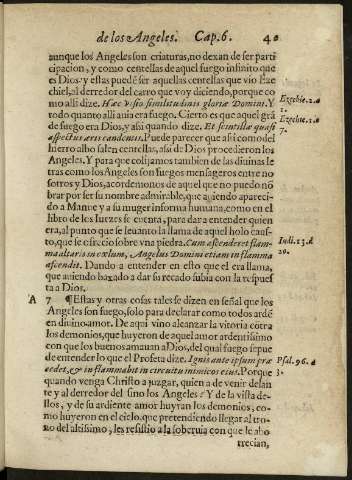 de los Angeles. Cap. 6. 40
aunque los Angeles son criaturas, no dexan de ser parti
cipacion, y como centellas de aquel fuego infinito que
es Dios: y estas puedē ser aquellas centellas que vio Eze
chiel, al derredor del carro que voy diziendo, porque co
mo alli dize. Hæc visio similitudinis gloriæ Domini. Y
todo quanto alli auia era fuego. Cierto es que aquel grā
de fuego era Dios, y assi quando dize. Et scintillæ quasi
aspectus æris candentis. Puede parecer que assi como del
hierro albo salen centellas, assi de Dios procedieron los
Angeles. Y para que colijamos tambien de las diuinas le
tras como los Angeles son fuegos mensageros entre no
sotros y Dios, acordemonos de aquel que no puedo nō
brar por ser su nombre admirable, que auiendo apareci-
do a Manue y a su muger informa humana, como en el
libro de los Iuezes se cuenta, para dar a entender quien
era, al punto que se leuanto la llama de aquel holo caus-
to, que le ofrecio sobre vna piedra. Cum ascenderet flam-
ma altaris in cœlum, Angelus Domini etiam in flamma
ascendit. Dando a entender en esto que el era llama,
que auiendo baxado a dar su recado subia con la respues
ta a Dios.
A 7 ¶ Estas y otras cosas tales se dizen en señal que los
Angeles son fuego, solo para declarar como todos ardē
en diuino amor. De aqui vino alcanzar la vitoria cōtra
los demonios, que huyeron de aquel amor ardentissimo
con que los buenos amauan a Dios, del qual fuego se pue
de entender lo que el Profeta dize. Ignis ante ipsum præ
cedet, & inflammabit in circuitu inimicos eius. Porque
quando venga Christo a juzgar, quien a de venir delan
te y al derredor del sino los Angeles? Y de la vista de-
llos, y de su ardiente amor huyran los demonios, co-
mo huyeron en el cielo, que pretendiendo llegar al tro-
no del altissimo, les resistio a la soberuia con que le abo
rrecian,
Ezechie. 1. d
2.
Ezechie. 1. a
7.
Iudi. 13. d
20.
Psal. 96. a
3.